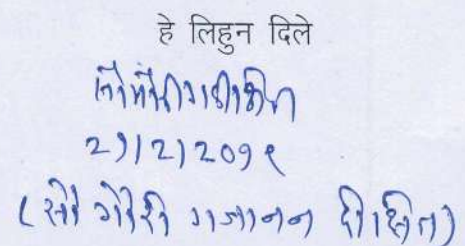 हे लिहुन दिले
२१/२/२०१९
(सौ गौरी गजानन दीक्षित)